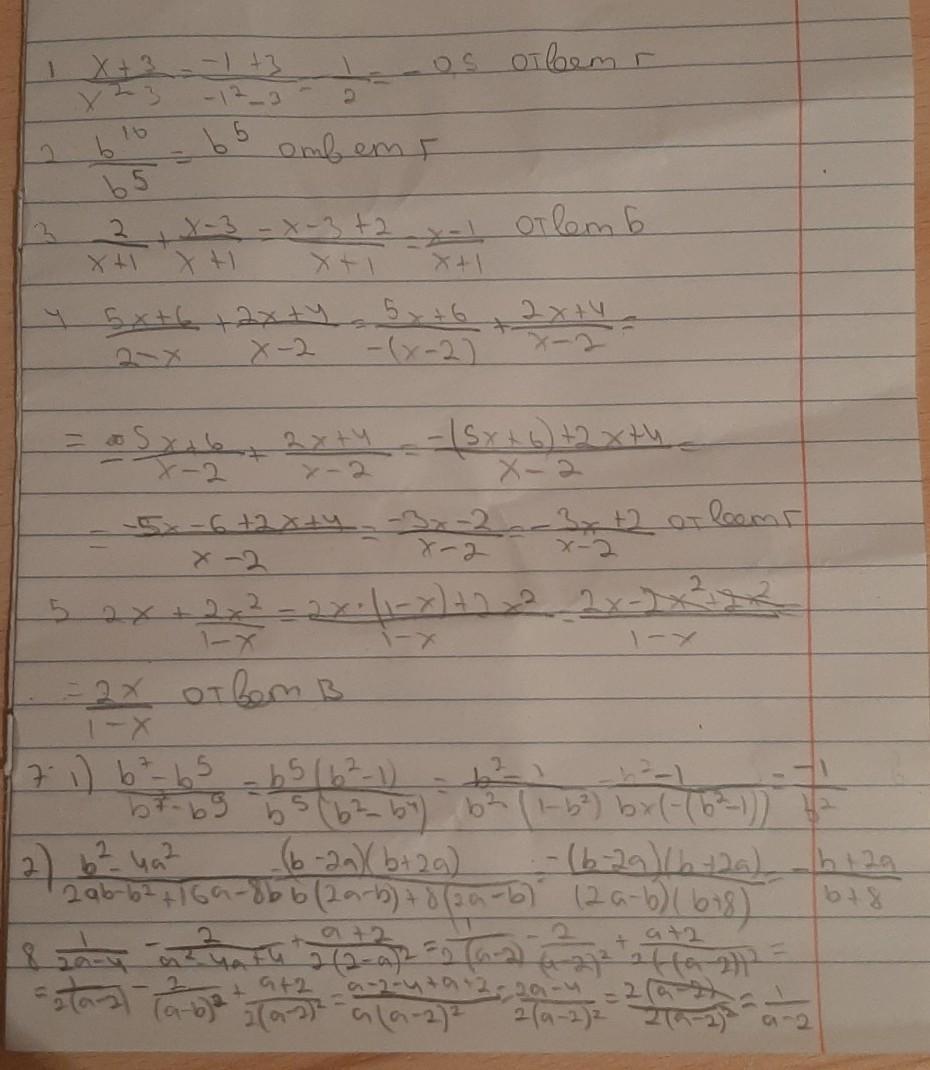 1 (x+3)/(x²-3) = (-1+3)/(-1²-3) - 1/2 = -0,5 ответ г
2 b¹⁰/b⁵ = b⁵ ответ г
3 2/(x+1) + (x-3)/(x+1) = (x-3+2)/(x+1) = (x-1)/(x+1) ответ Б
4 (5x+6)/(2-x) + (2x+4)/(x-2) = (5x+6)/(-(x-2)) + (2x+4)/(x-2) =
= -(5x+6)/(x-2) + (2x+4)/(x-2) = (-(5x+6)+2x+4)/(x-2) =
= (-5x-6+2x+4)/(x-2) = (-3x-2)/(x-2) = -(3x+2)/(x-2) ответ г
5 2x + 2x²/(1-x) = (2x·(1-x)+2x²)/(1-x) = (2x-2x²+2x²)/(1-x) =
= 2x/(1-x) ответ В
7. 1) (b⁷-b⁵)/(b⁷-b⁹) = b⁵(b²-1)/(b⁵(b²-b⁴)) = (b²-1)/(b²(1-b²)) = (b²-1)/(b×(-(b²-1))) = -1/b²
2) (b²-4a²)/(2ab-b²+16a-8b) = (b-2a)(b+2a)/(b(2a-b)+8(2a-b)) = -(b-2a)(b+2a)/((2a-b)(b+8)) = -(b+2a)/(b+8)
8 1/(2a-4) - 2/(a²-4a+4) + (a+2)/(2(2-a)²) = 1/(2(a-2)) - 2/(a-2)² + (a+2)/(2(-(a-2))²) =
= 1/(2(a-2)) - 2/(a-b)² + (a+2)/(2(a-2)²) = (a-2-4+a+2)/(a(a-2)²) = (2a-4)/(2(a-2)²) = 2(a-2)/(2(a-2)²) = 1/(a-2)